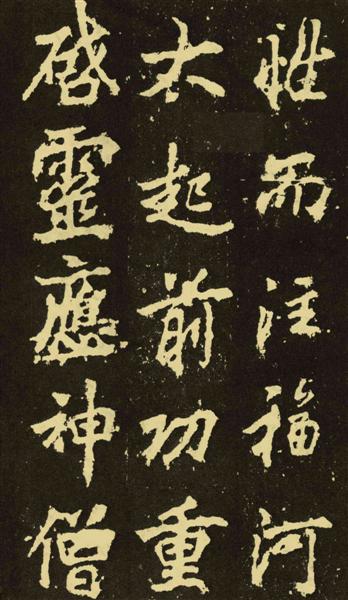 性而注福河
太起前功重
啓靈應神僧